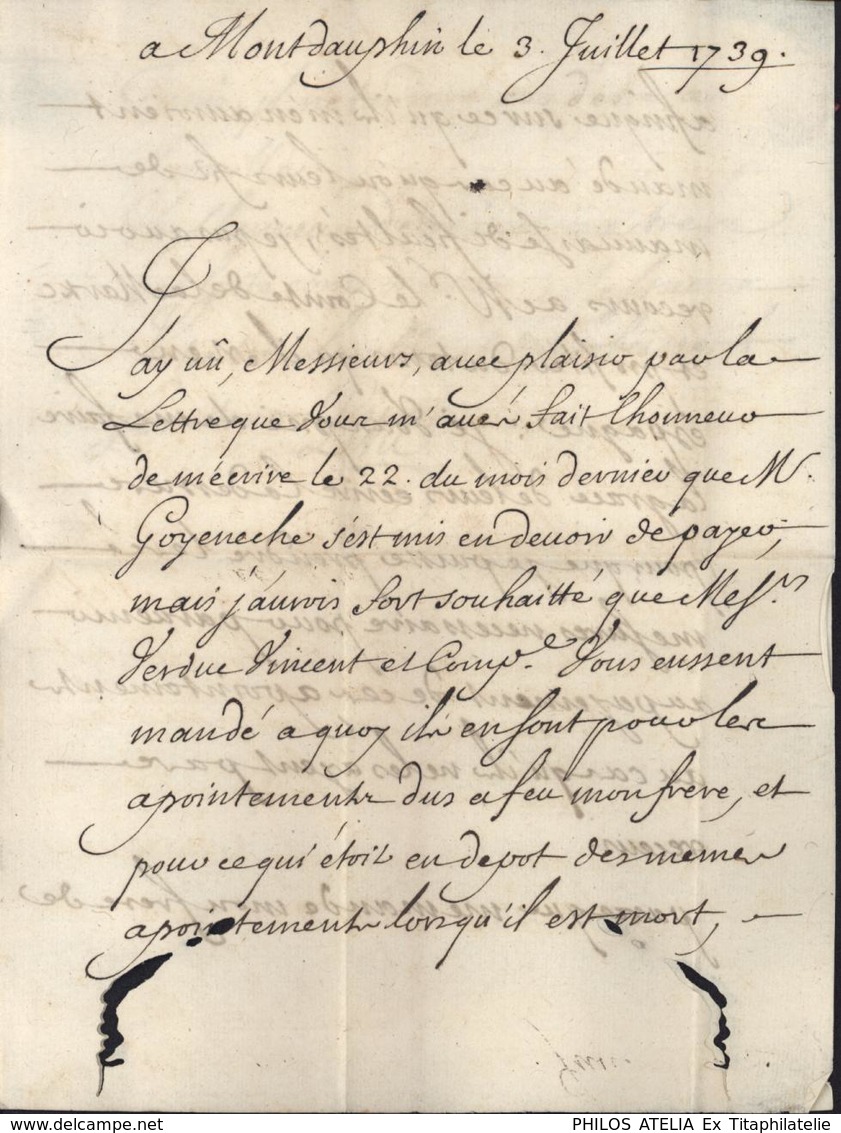 a Montdauphin le 3. Juillet 1739.
J'ay vû, Messieurs, avec plaisir par la
Lettre que Vous m'avez fait l'honneur
de m'écrire le 22. du mois dernier que M.r
Goyeneche s'est mis en devoir de payer,
mais j'aurois fort souhaitté que Mess.rs
Verduc Vincent et Comp.e Vous eussent
mandé a quoy ils en sont pour les
apointements dus a feu mon frere, et
pour ce qui étoit en depot des mémes
apointements lorsqu'il est mort,
PHILOS ATELIA Ex Titaphilatelie